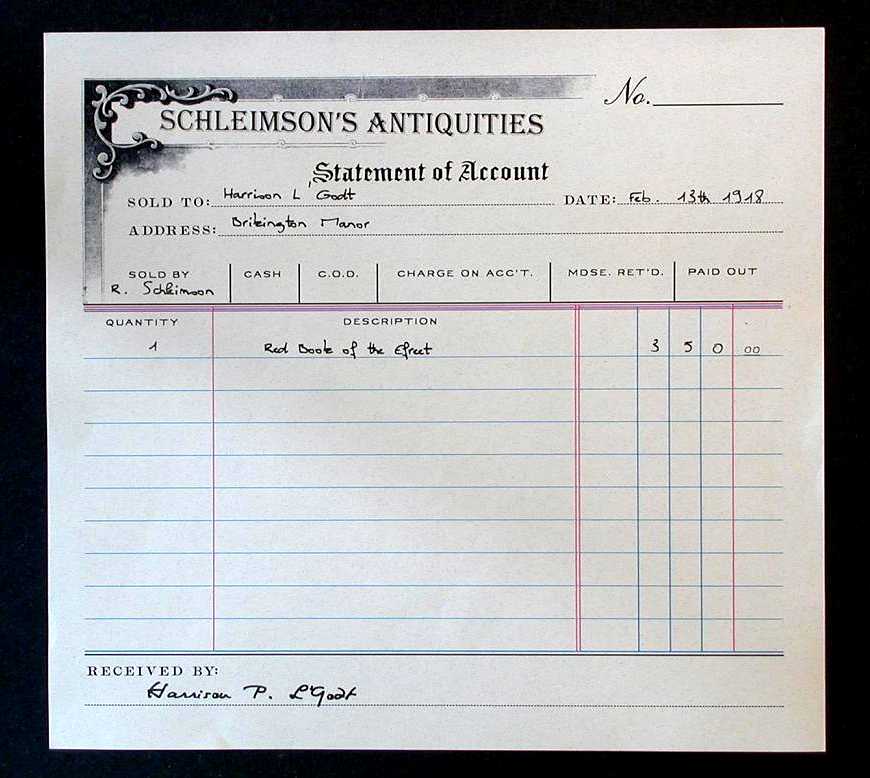 No.
SCHLEIMSON'S ANTIQUITIES
Statement of Account
SOLD TO: Harrison L'Godt DATE: Feb. 13th 1918
ADDRESS: Manor
SOLD BY CASH C.O.D. CHARGE ON ACC'T. MDSE. RET'D. PAID OUT
R. Schleimson
QUANTITY DESCRIPTION
1 Red Book of the Efreet 3 5 0 00
RECEIVED BY:
Harrison P. L'Godt